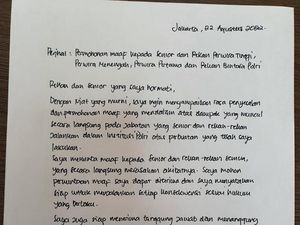 Jakarta, 22 Agustus 2022
Perihal : Permohonan maaf kepada senior dan Rekan Perwira Tinggi,
Perwira Menengah, Perwira Pertama dan Rekan Bintara Polri
Rekan dan Senior yang saya hormati,
Dengan niat yang murni, saya ingin menyampaikan rasa penyesalan
dan permohonan maaf yang mendalam atas dampak yang muncul
secara langsung pada jabatan yang senior dan rekan-rekan
jalankan dalam institusi Polri atas perbuatan yang telah saya
lakukan.
Saya meminta maaf kepada senior dan rekan-rekan semua,
yang secara langsung merasakan akibatnya. Saya mohon
permintaan maaf saya dapat diterima dan saya menyatakan
siap untuk menjalankan setiap konsekuensi sesuai hukum
yang berlaku.
Saya juga siap menerima tanggung jawab dan menanggung